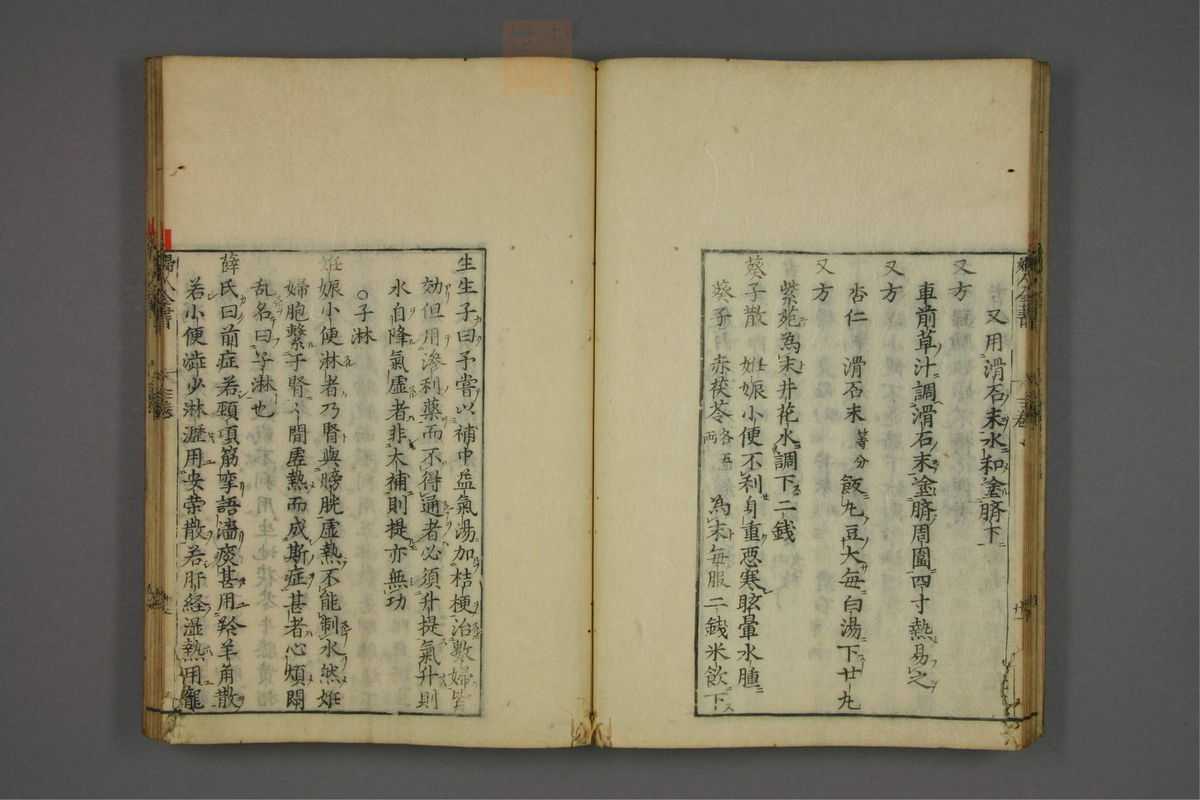 又用滑石末水和塗臍下
又方
車前草汁調滑石末塗臍周圍四寸熱易之
又方
杏仁　滑石末等分　飯丸豆大每白湯下廿丸
又方
紫苑為末井花水調下二錢
葵子散　妊娠小便不利身重惡寒眩暈水腫
葵子　赤茯苓各五兩　為末每服二錢米飲下
生生子曰予嘗以補中益氣湯加桔梗治數婦皆
効但用滲利藥而不得通者必須升提氣升則
水自降氣虛者非大補則提亦無功
○子淋
妊娠小便淋者乃腎與膀胱虛熱不能制水然妊
婦胞繫于腎〻間虛熱而成斯症甚者心煩悶
乱名曰子淋也
薛氏曰前症若頸項筋攣語澁痰甚用羚羊角散
若小便澁少淋瀝用安榮散若肝経湿熱用龍
婦人全書